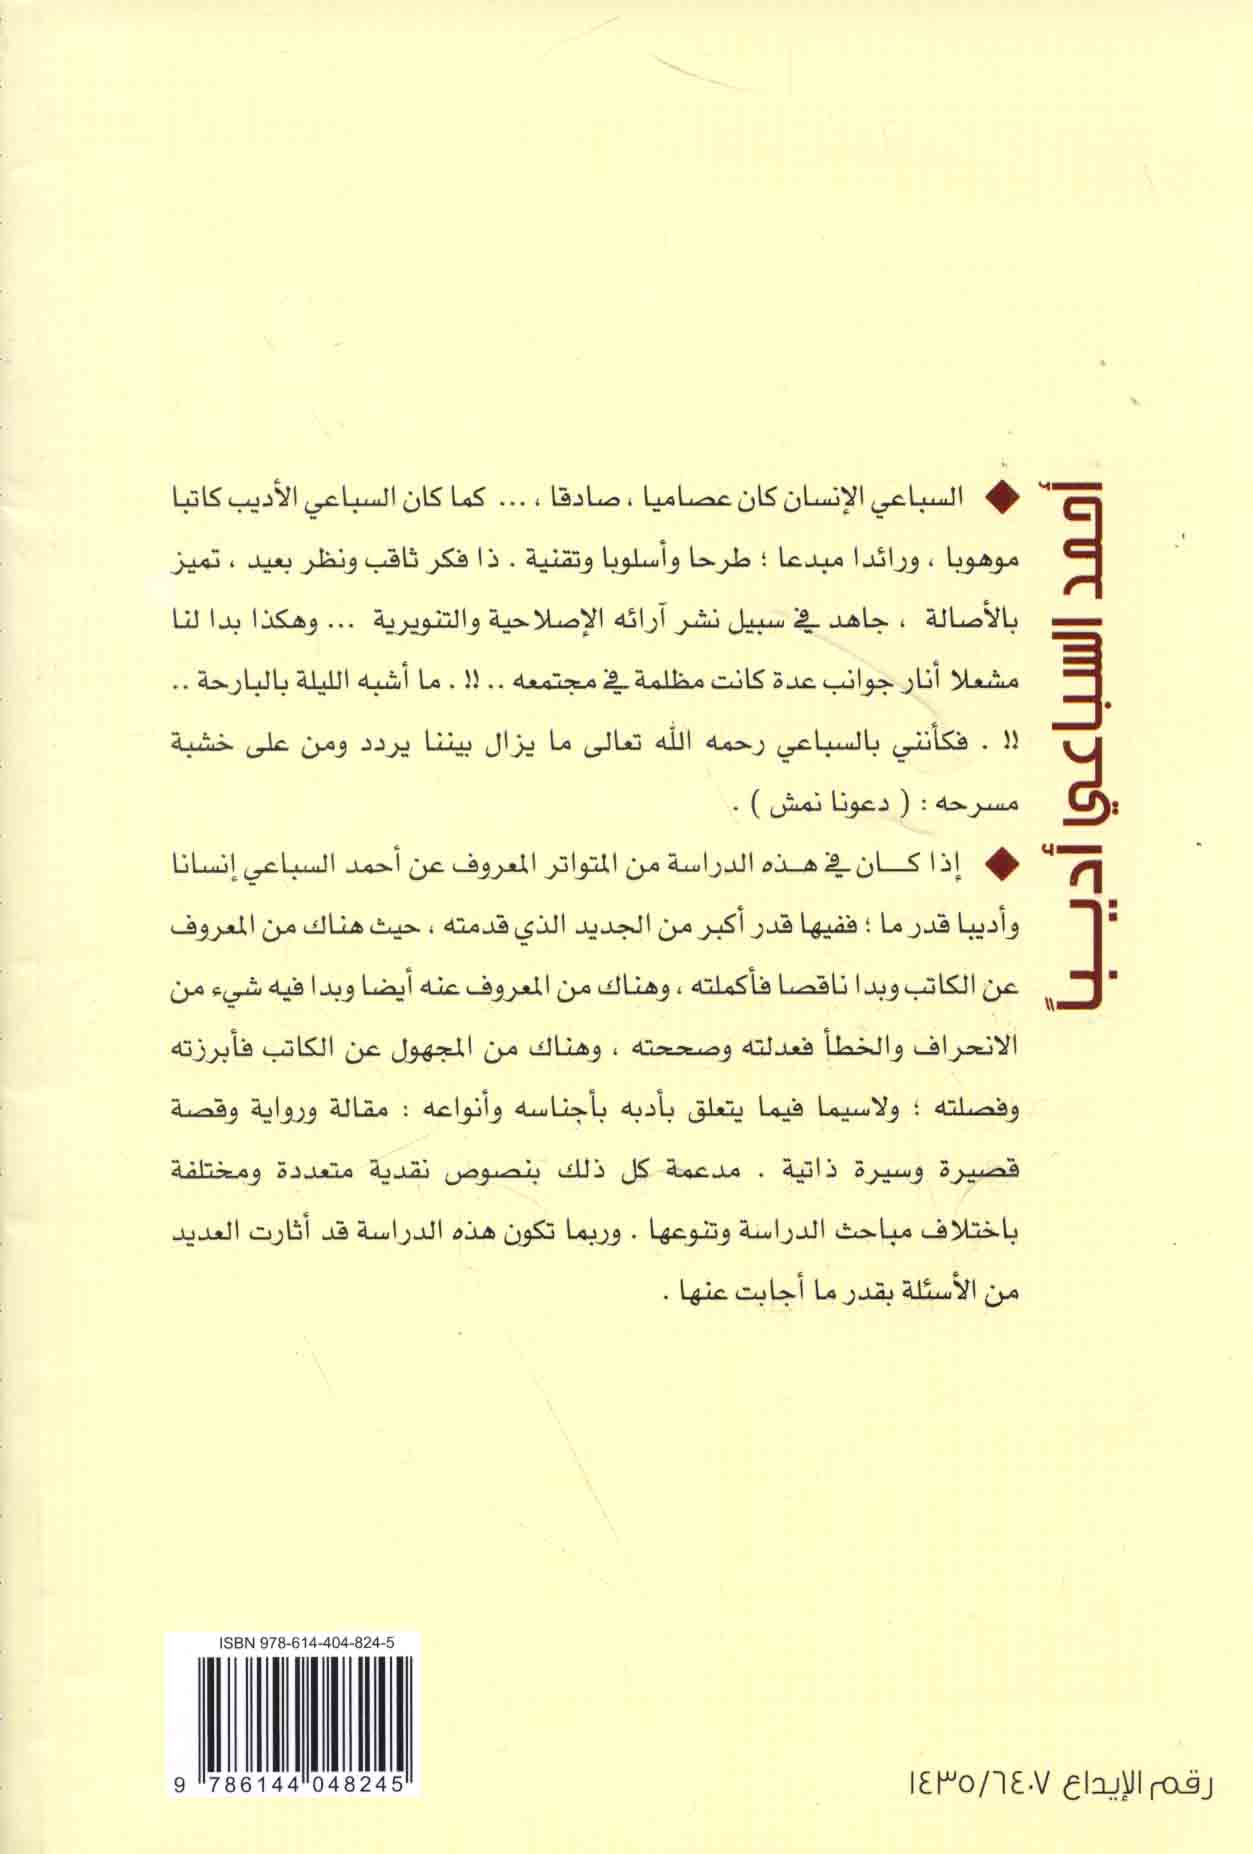 أحمد السباعي أديبـاً
◆ السباعي الإنسان كان عصاميا ، صادقا ، ... كما كان السباعي الأديب كاتبا
موهوبا ، ورائدا مبدعا ؛ طرحا وأسلوبا وتقنية . ذا فكر ثاقب ونظر بعيد ، تميز
بالأصالة ، جاهد في سبيل نشر آرائه الإصلاحية والتنويرية ... وهكذا بدا لنا
مشعلا أنار جوانب عدة كانت مظلمة في مجتمعه .. !! . ما أشبه الليلة بالبارحة ..
!! . فكأنني بالسباعي رحمه الله تعالى ما يزال بيننا يردد ومن على خشبة
مسرحه : ( دعونا نمش ) .
◆ إذا كـــان في هـذه الدراسة من المتواتر المعروف عن أحمد السباعي إنسانا
وأديبا قدر ما ؛ ففيها قدر أكبر من الجديد الذي قدمته ، حيث هناك من المعروف
عن الكاتب وبدا ناقصا فأكملته ، وهناك من المعروف عنه أيضا وبدا فيه شيء من
الانحراف والخطأ فعدلته وصححته ، وهناك من المجهول عن الكاتب فأبرزته
وفصلته ؛ ولاسيما فيما يتعلق بأدبه بأجناسه وأنواعه : مقالة ورواية وقصة
قصيرة وسيرة ذاتية . مدعمة كل ذلك بنصوص نقدية متعددة ومختلفة
باختلاف مباحث الدراسة وتنوعها . وربما تكون هذه الدراسة قد أثارت العديد
من الأسئلة بقدر ما أجابت عنها .
ISBN 978-614-404-824-5
9 786144 048245
رقم الإيداع ١٤٣٥/٦٤٠٧